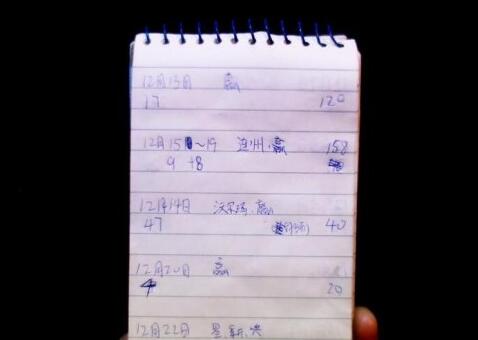 12月13日 赢
17 120
12月15~19 连州.赢 158
9 +8
12月14日 沃尔玛.赢
47 40
12月20日 赢
4 20
12月22日 星.新.兴